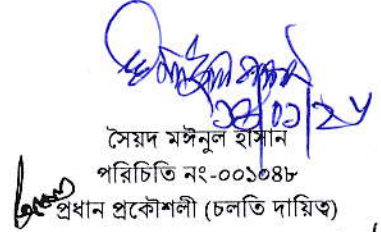 সৈয়দ মঈনুল হাসান
পরিচিতি নং-০০১০৪৮
প্রধান প্রকৌশলী (চলতি দায়িত্ব)